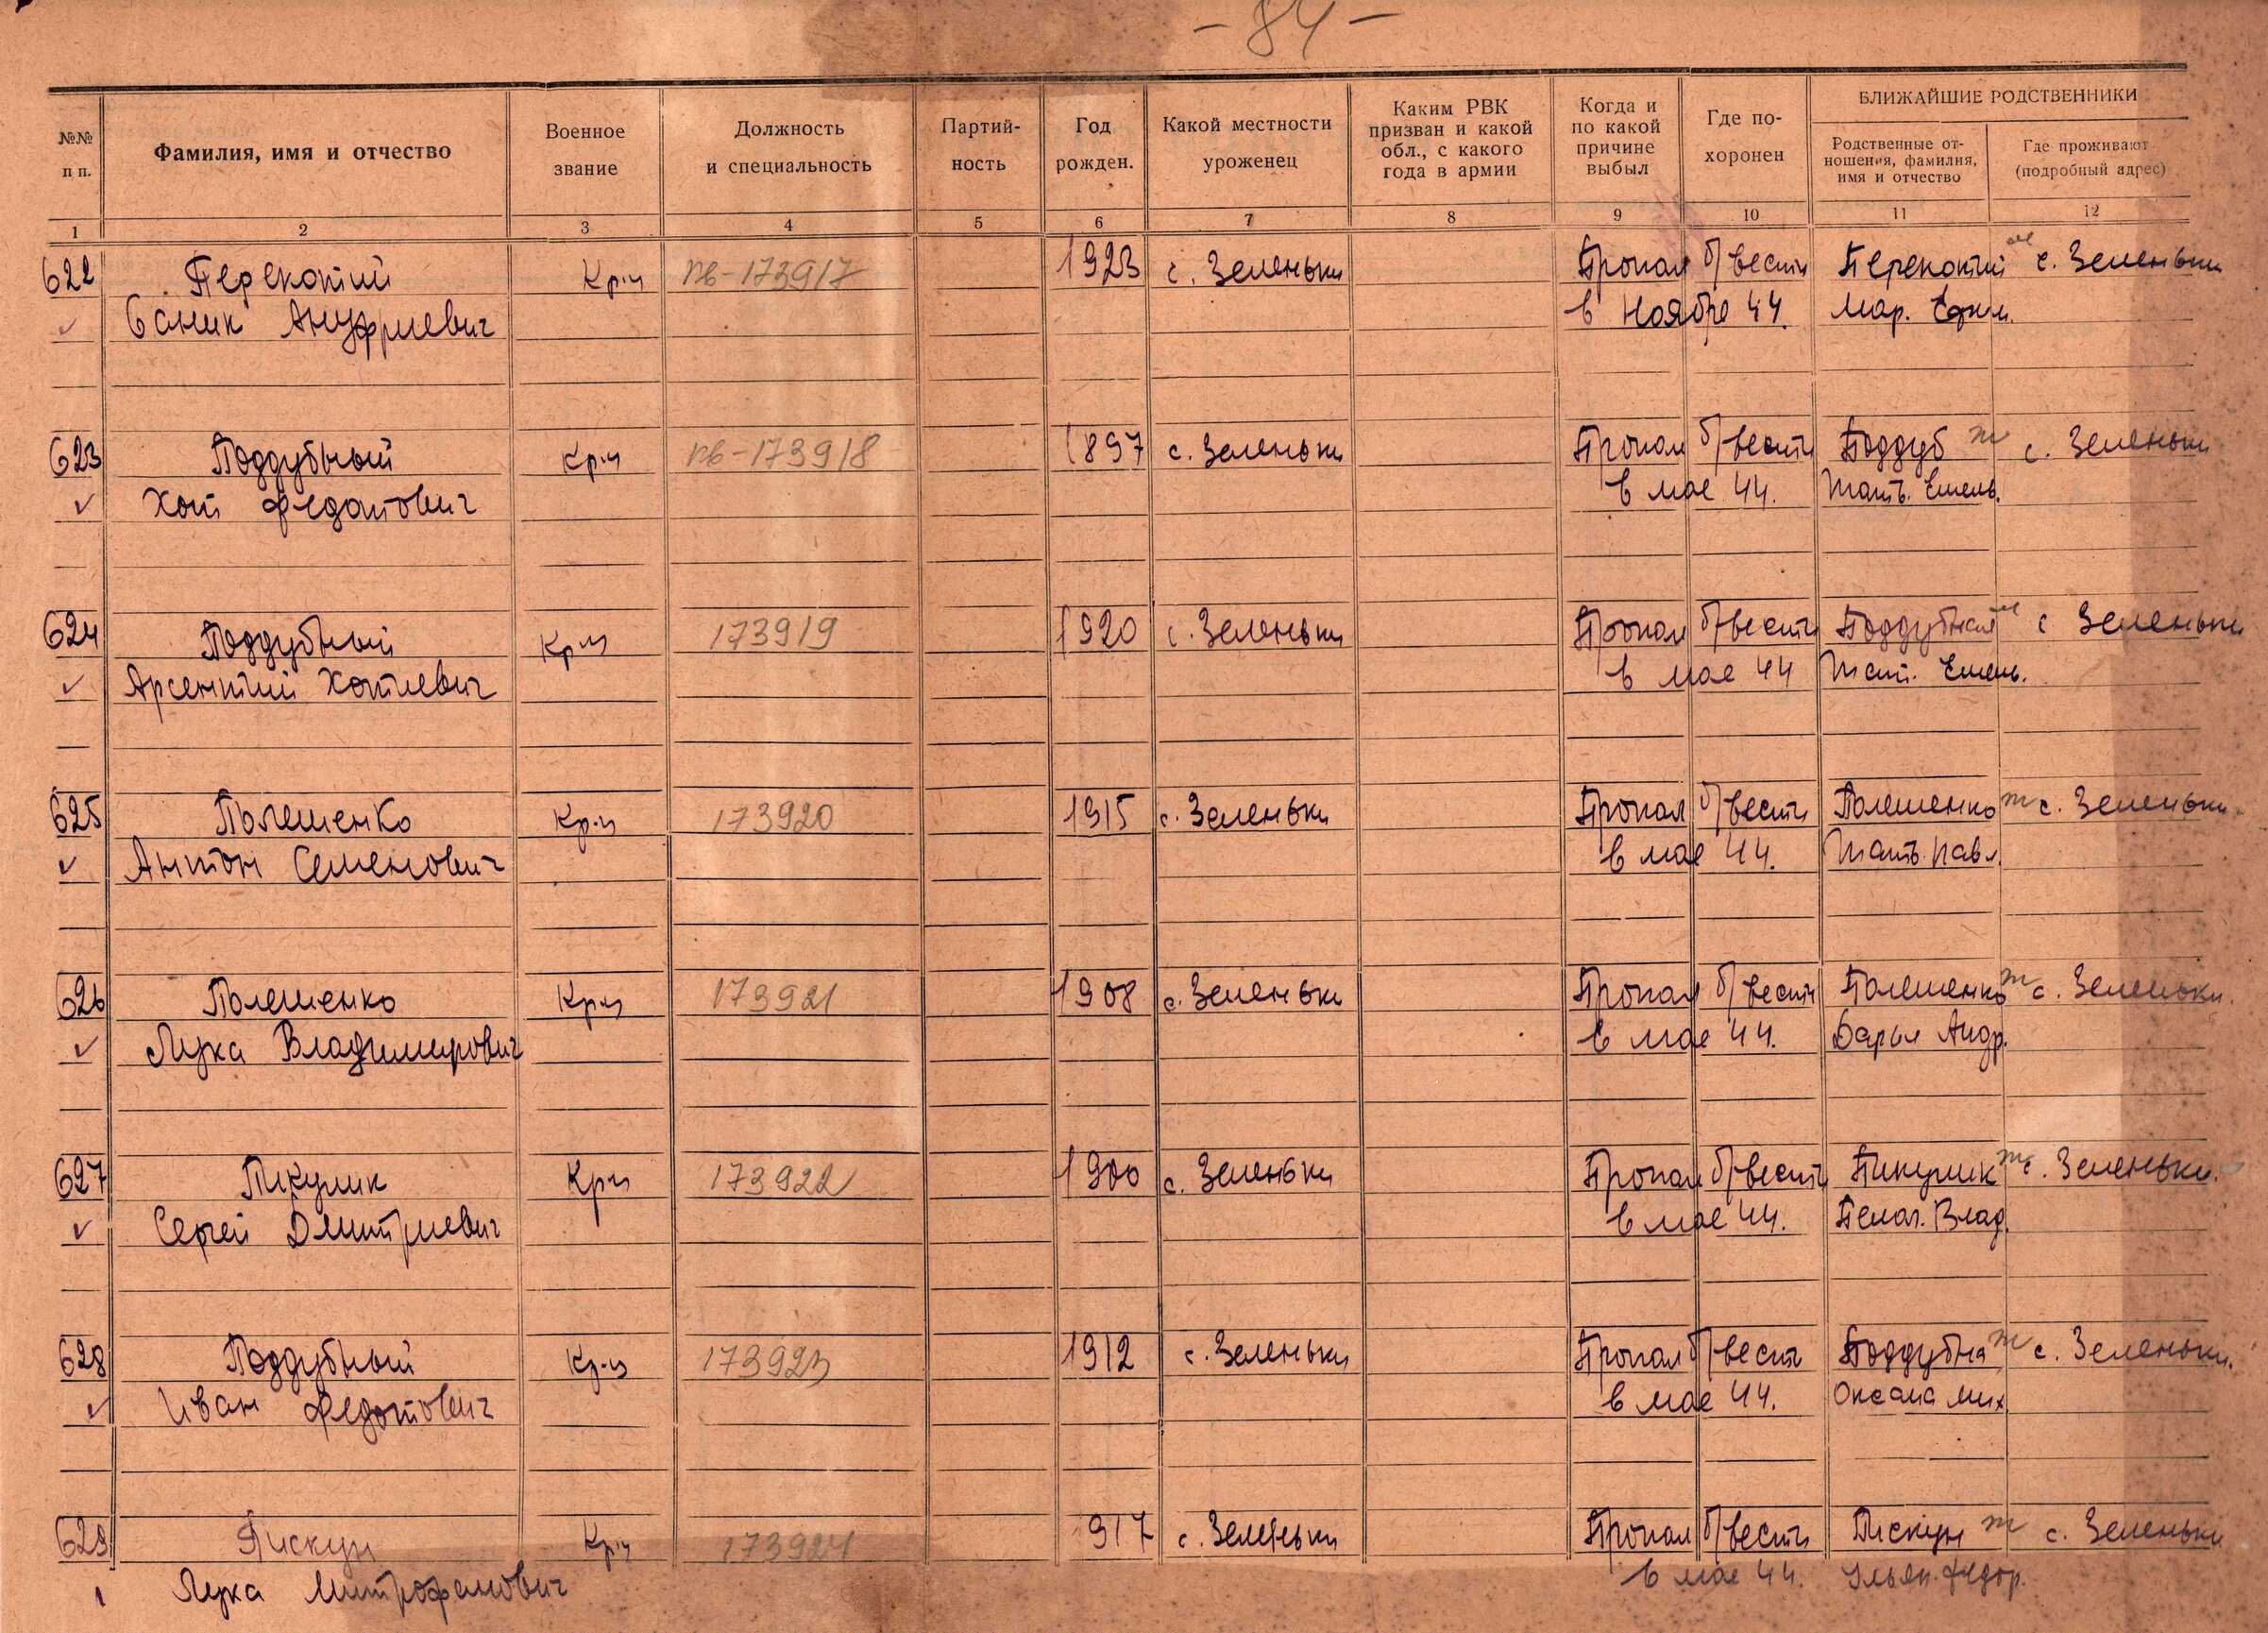 - 84 -
БЛИЖАЙШИЕ РОДСТВЕННИКИ
№№ п п.
Фамилия, имя и отчество
Военное звание
Должность и специальность
Партий- ность
Год рожден.
Какой местности уроженец
Каким РВК призван и какой обл., с какого года в армии
Когда и по какой причине выбыл
Где по- хоронен
Родственные от- ношения, фамилия, имя и отчество
Где проживают (подробный адрес)
1 2 3 4 5 6 7 8 9 10 11 12
622 Перекотий Кр-ц пв-173917 1923 с. Зеленьки Пропал б/вести Перекотий с. Зеленьки
Ануфриевич в Ноябре 44. Мар. Ефим.
623 Поддубный Кр-ц пв-173918 1897 с. Зеленьки Пропал б/вести Поддуб ж с. Зеленьки
Хот Федотович в мае 44. Тать. Емель.
624 Поддубный Кр-ц 173919 1920 с. Зеленьки Пропал б/вести Поддубная с Зеленьки
Арсентий Хотиевич в мае 44 Тат. Емель.
625 Полешенко Кр-ц 173920 1915 с. Зеленьки Пропал б/вести Полешенко ж с. Зеленьки.
Антон Семенович в мае 44. Тать. Павл.
626 Полешенко Кр-ц 173921 1908 с. Зеленьки Пропал б/вести Полешенко ж с. Зеленьки.
Лука Владимирович в мае 44. Дарья Андр.
627 Пикулик Кр-ц 173922 1900 с. Зеленьки Пропал б/вести Пикулик ж с. Зеленьки.
Сергей Дмитриевич в мае 44. Пелаг. Влад.
628 Поддубный Кр-ц 173923 1912 с. Зеленьки Пропал б/вести Поддубна ж с. Зеленьки.
Иван Федотович в мае 44. Оксана Мих.
629 Пискун Кр-ц 173924 1917 с. Зеленьки Пропал б/вести Пискун ж с. Зеленьки
Лука Митрофанович в мае 44. Ульян. Федор.